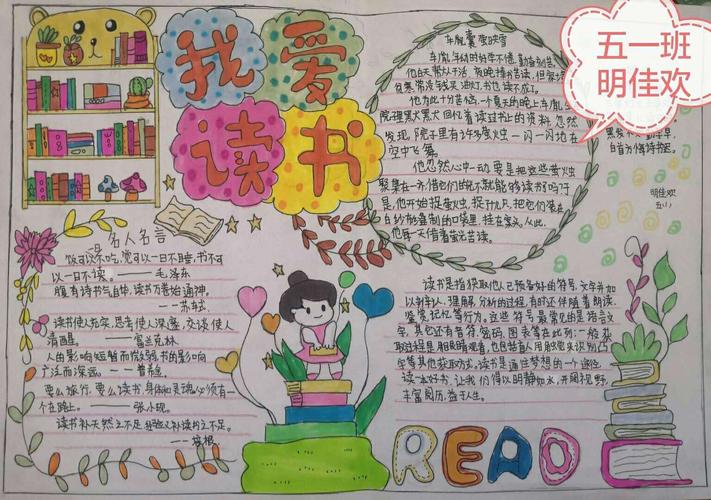 我爱
读书
五一班
明佳欢
车胤囊萤映雪
车胤年幼时好学不倦,勤奋刻苦
他白天帮大人干活,夜晚捧书苦读,但
家贫常没钱买油灯,书也读不成了。
他为此十分苦恼。一个夏天的晚上,车胤坐
院里默默回忆着读过书上的资料,忽然
发现,院子里有许多萤火虫一闪一闪地在
空中飞舞。
他忽然心中一动,要是把这些萤火虫
聚集在一齐,借它们的光不就能够读书了吗?于
是,他开始捉萤火虫,捉了十几只,把它们装在
白纱布缝制的口袋里,挂在案头。从此,
他每天借着萤光苦读。
白首方悔读书迟。
明佳欢
五(1)
名人名言
饭可以一日不吃,觉可以一日不睡,书不可
以一日不读。——毛泽东
腹有诗书气自华,读书万卷始通神。
——苏轼
读书使人充实,思考使人深邃,交谈使人
清醒。——富兰克林
人的影响短暂而微弱,书的影响
广泛而深远。——普希金
要么旅行,要么读书,身体和灵魂必须有一
个在路上。——张小砚
读书补天然之不足,经验又补读书之不足。
——培根
读书是指获取他人已预备好的符号、文字并加
以辨认、理解、分析的过程,有时还伴随着朗读、
鉴赏、记忆等行为。这些符号最常见的是语言文
字,其它还有音符、密码、图表等在此列;一般获
取过程是用眼睛观看,也包括盲人用触觉来识别凸
字等其他获取方式。读书是通过梦想的一个途径。
读一本好书,让我们得以明静如水,开阔视野,
丰富阅历,益于人生。
READ